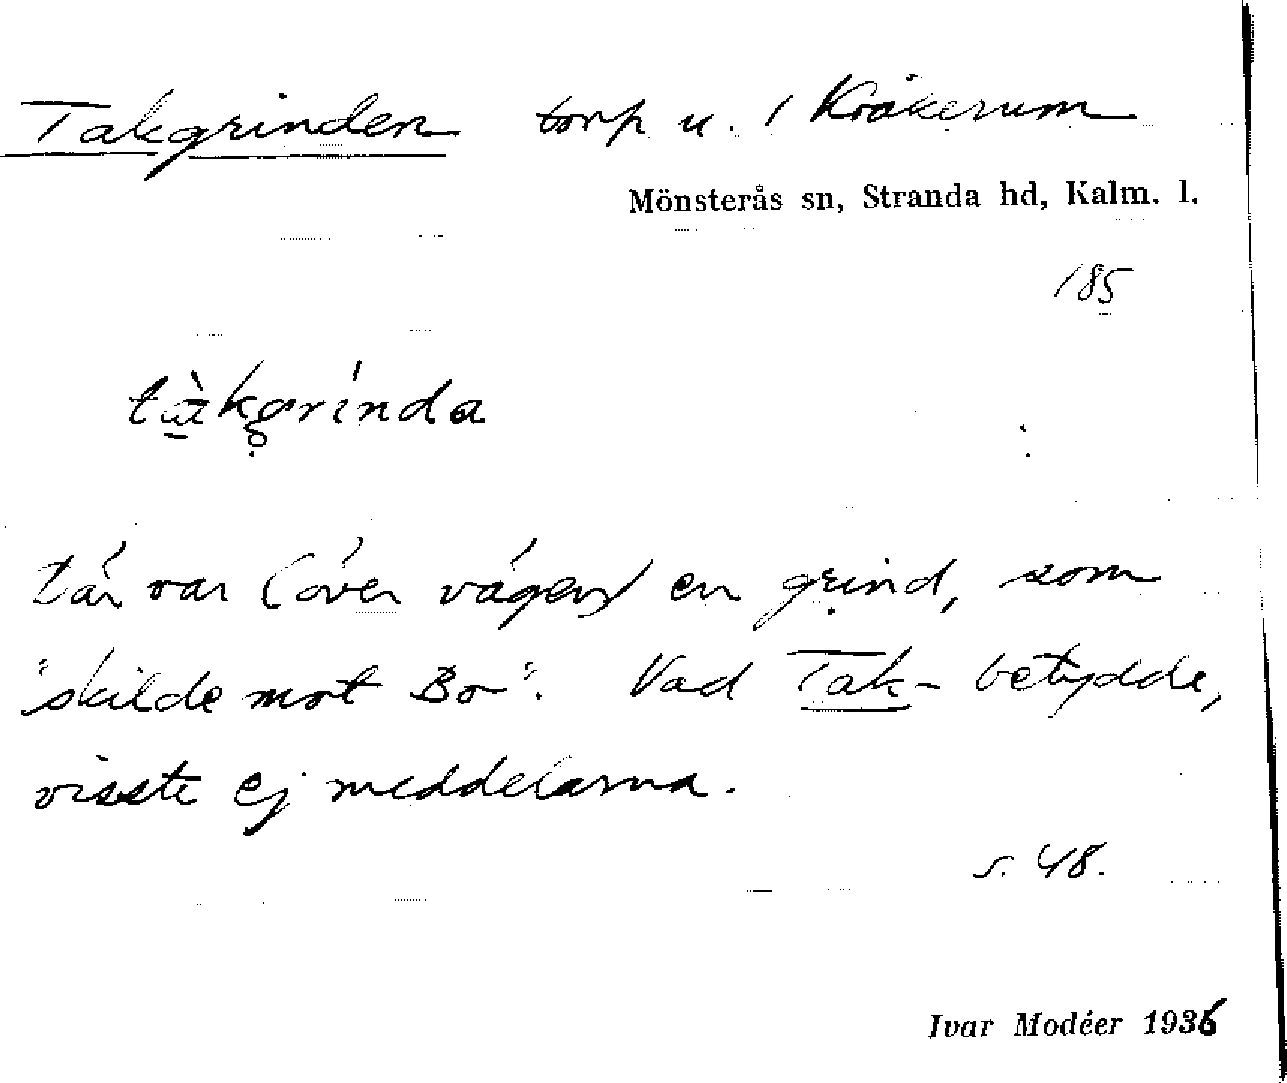 Takgrinden torp u. 1 Kråkerum
Mönsterås sn, Stranda hd, Kalm. l.
185
tàkgrinda
Där var (över vägen) en grind, som
"skilde mot Bo". Vad Tak- betydde,
visste ej meddelarna.
s. 48.
Ivar Modéer 1936